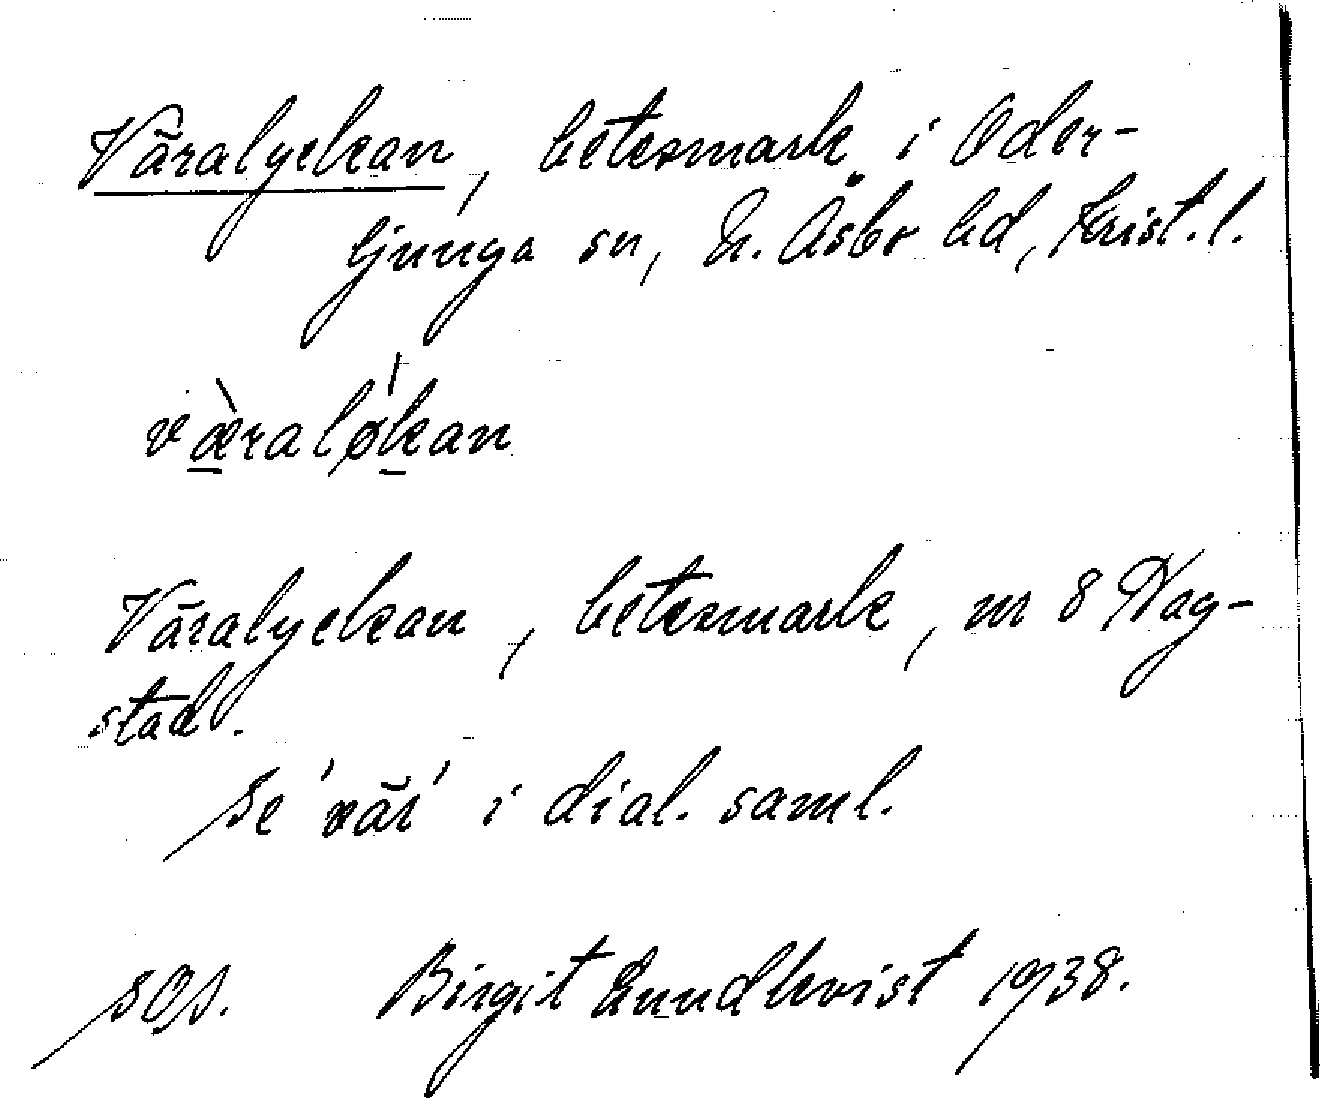 Väralyckan, betesmark i Oder-
ljunga sn, N. Åsbo hd, Krist. l.
væ̀ralǿkan
Väralyckan, betesmark, nr 8 Hag-
stad.
Se 'vär' i dial. saml.
SOS. Birgit Lundkvist 1938.